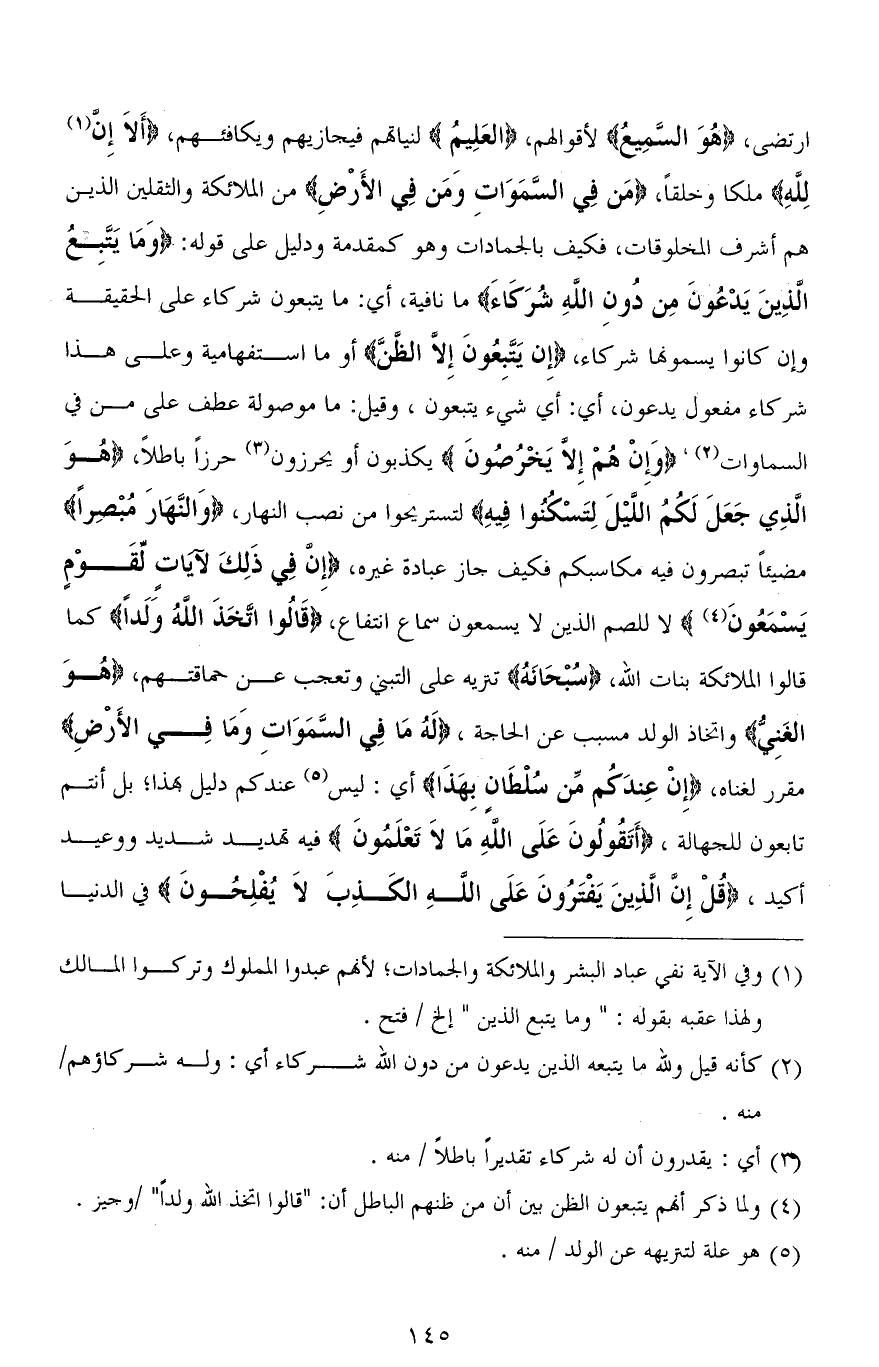 ارتضى، ﴿هُوَ السَّمِيعُ﴾ لأقوالهم، ﴿العَلِيمُ ﴾ لنياتهم فيجازيهم ويكافئــهم، ﴿أَلاَ إِنَّ(١)
لِلَّهِ﴾ ملكا وخلقاً، ﴿مَن فِي السَّمَوَاتِ وَمَن فِي الأَرْضِ﴾ من الملائكة والثقلين الذيـن
هم أشرف المخلوقات، فكيف بالجمادات وهو كمقدمة ودليل على قوله: ﴿وَمَا يَتَّبِــعُ
الَّذِينَ يَدْعُونَ مِن دُونِ اللَّهِ شُرَكَاءَ﴾ ما نافية، أي: ما يتبعون شركاء على الحقيقــة
وإن كانوا يسمونها شركاء، ﴿إِن يَتَّبِعُونَ إِلاَّ الظَّنَّ﴾ أو ما اســتفهامية وعلــى هــذا
شركاء مفعول يدعون، أي: أي شيء يتبعون ، وقيل: ما موصولة عطف على مــن في
السماوات(٢) ، ﴿وَإِنْ هُمْ إِلاَّ يَخْرُصُونَ ﴾ يكذبون أو يحرزون(٣) حرزاً باطلاً، ﴿هُــوَ
الَّذِي جَعَلَ لَكُمُ اللَّيْلَ لِتَسْكُنُوا فِيهِ﴾ لتستريحوا من نصب النهار، ﴿وَالنَّهَارَ مُبْصِراً﴾
مضيئاً تبصرون فيه مكاسبكم فكيف جاز عبادة غيره، ﴿إِنَّ فِي ذَلِكَ لآيَاتٍ لِّقَــوْمٍ
يَسْمَعُونَ(٤) ﴾ لا للصم الذين لا يسمعون سماع انتفاع، ﴿قَالُوا اتَّخَذَ اللَّهُ وَلَداً﴾ كما
قالوا الملائكة بنات الله، ﴿سُبْحَانَهُ﴾ تنزيه على التبني وتعجب عــن حماقتــهم، ﴿هُــوَ
الغَنِيُّ﴾ واتخاذ الولد مسبب عن الحاجة ، ﴿لَهُ مَا فِي السَّمَوَاتِ وَمَا فِــي الأَرْضِ﴾
مقرر لغناه، ﴿إِنْ عِندَكُم مِّن سُلْطَانٍ بِهَذَا﴾ أي : ليس(٥) عندكم دليل بهذا؛ بل أنتــم
تابعون للجهالة ، ﴿أَتَقُولُونَ عَلَى اللَّهِ مَا لاَ تَعْلَمُونَ ﴾ فيه تهديــد شــديد ووعيــد
أكيد ، ﴿قُلْ إِنَّ الَّذِينَ يَفْتَرُونَ عَلَى اللَّــهِ الكَــذِبَ لاَ يُفْلِحُــونَ ﴾ في الدنيــا
(١) وفي الآية نفي عباد البشر والملائكة والجمادات؛ لأنهم عبدوا المملوك وتركــوا المــالك
ولهذا عقبه بقوله : " وما يتبع الذين " إلخ / فتح .
(٢) كأنه قيل ولله ما يتبعه الذين يدعون من دون الله شــركاء أي : ولــه شــركاؤهم/
منه .
(٣) أي : يقدرون أن له شركاء تقديراً باطلاً / منه .
(٤) ولما ذكر أنهم يتبعون الظن بين أن من ظنهم الباطل أن: "قالوا اتخذ الله ولداً" /وجيز .
(٥) هو علة لتنزيهه عن الولد / منه .
١٤٥